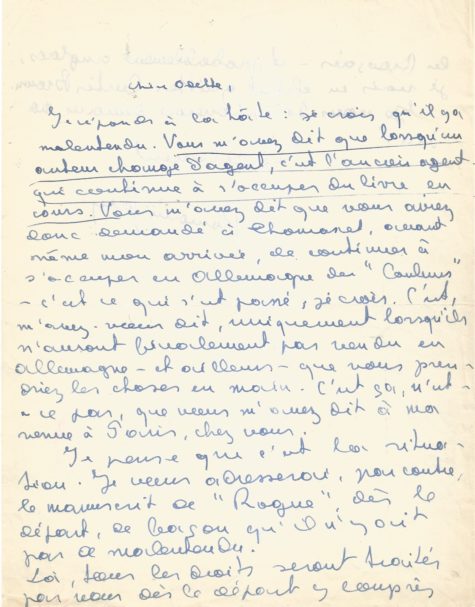 chère Odette,
Je réponds à la hâte : je crois qu'il y a
malentendu. Vous m'avez dit que lorsqu'un
auteur change d'agent, c'est l'ancien agent
qui continue à s'occuper du livre en
cours. Vous m'avez dit que vous aviez
donc demandé à avant
même mon arrivée, de continuer à
s'occuper en Allemagne des "Couleurs"
- c'est ce qui s'est passé, je crois. C'est,
m'avez-vous dit, uniquement lorsqu'ils
n'auront finalement pas vendu en
Allemagne - et ailleurs - que vous pren-
driez les choses en main. C'est ça, n'est-
-ce pas, que vous m'avez dit à ma
venue à Paris, chez vous.
Je pense que c'est la situa-
tion. Je vous adresserai, par contre,
le manuscrit de " " dès le
départ, de façon qu'il n'y ait
pas de malentendu.
Là, tous les droits seront traités
par vous dès le départ y compris